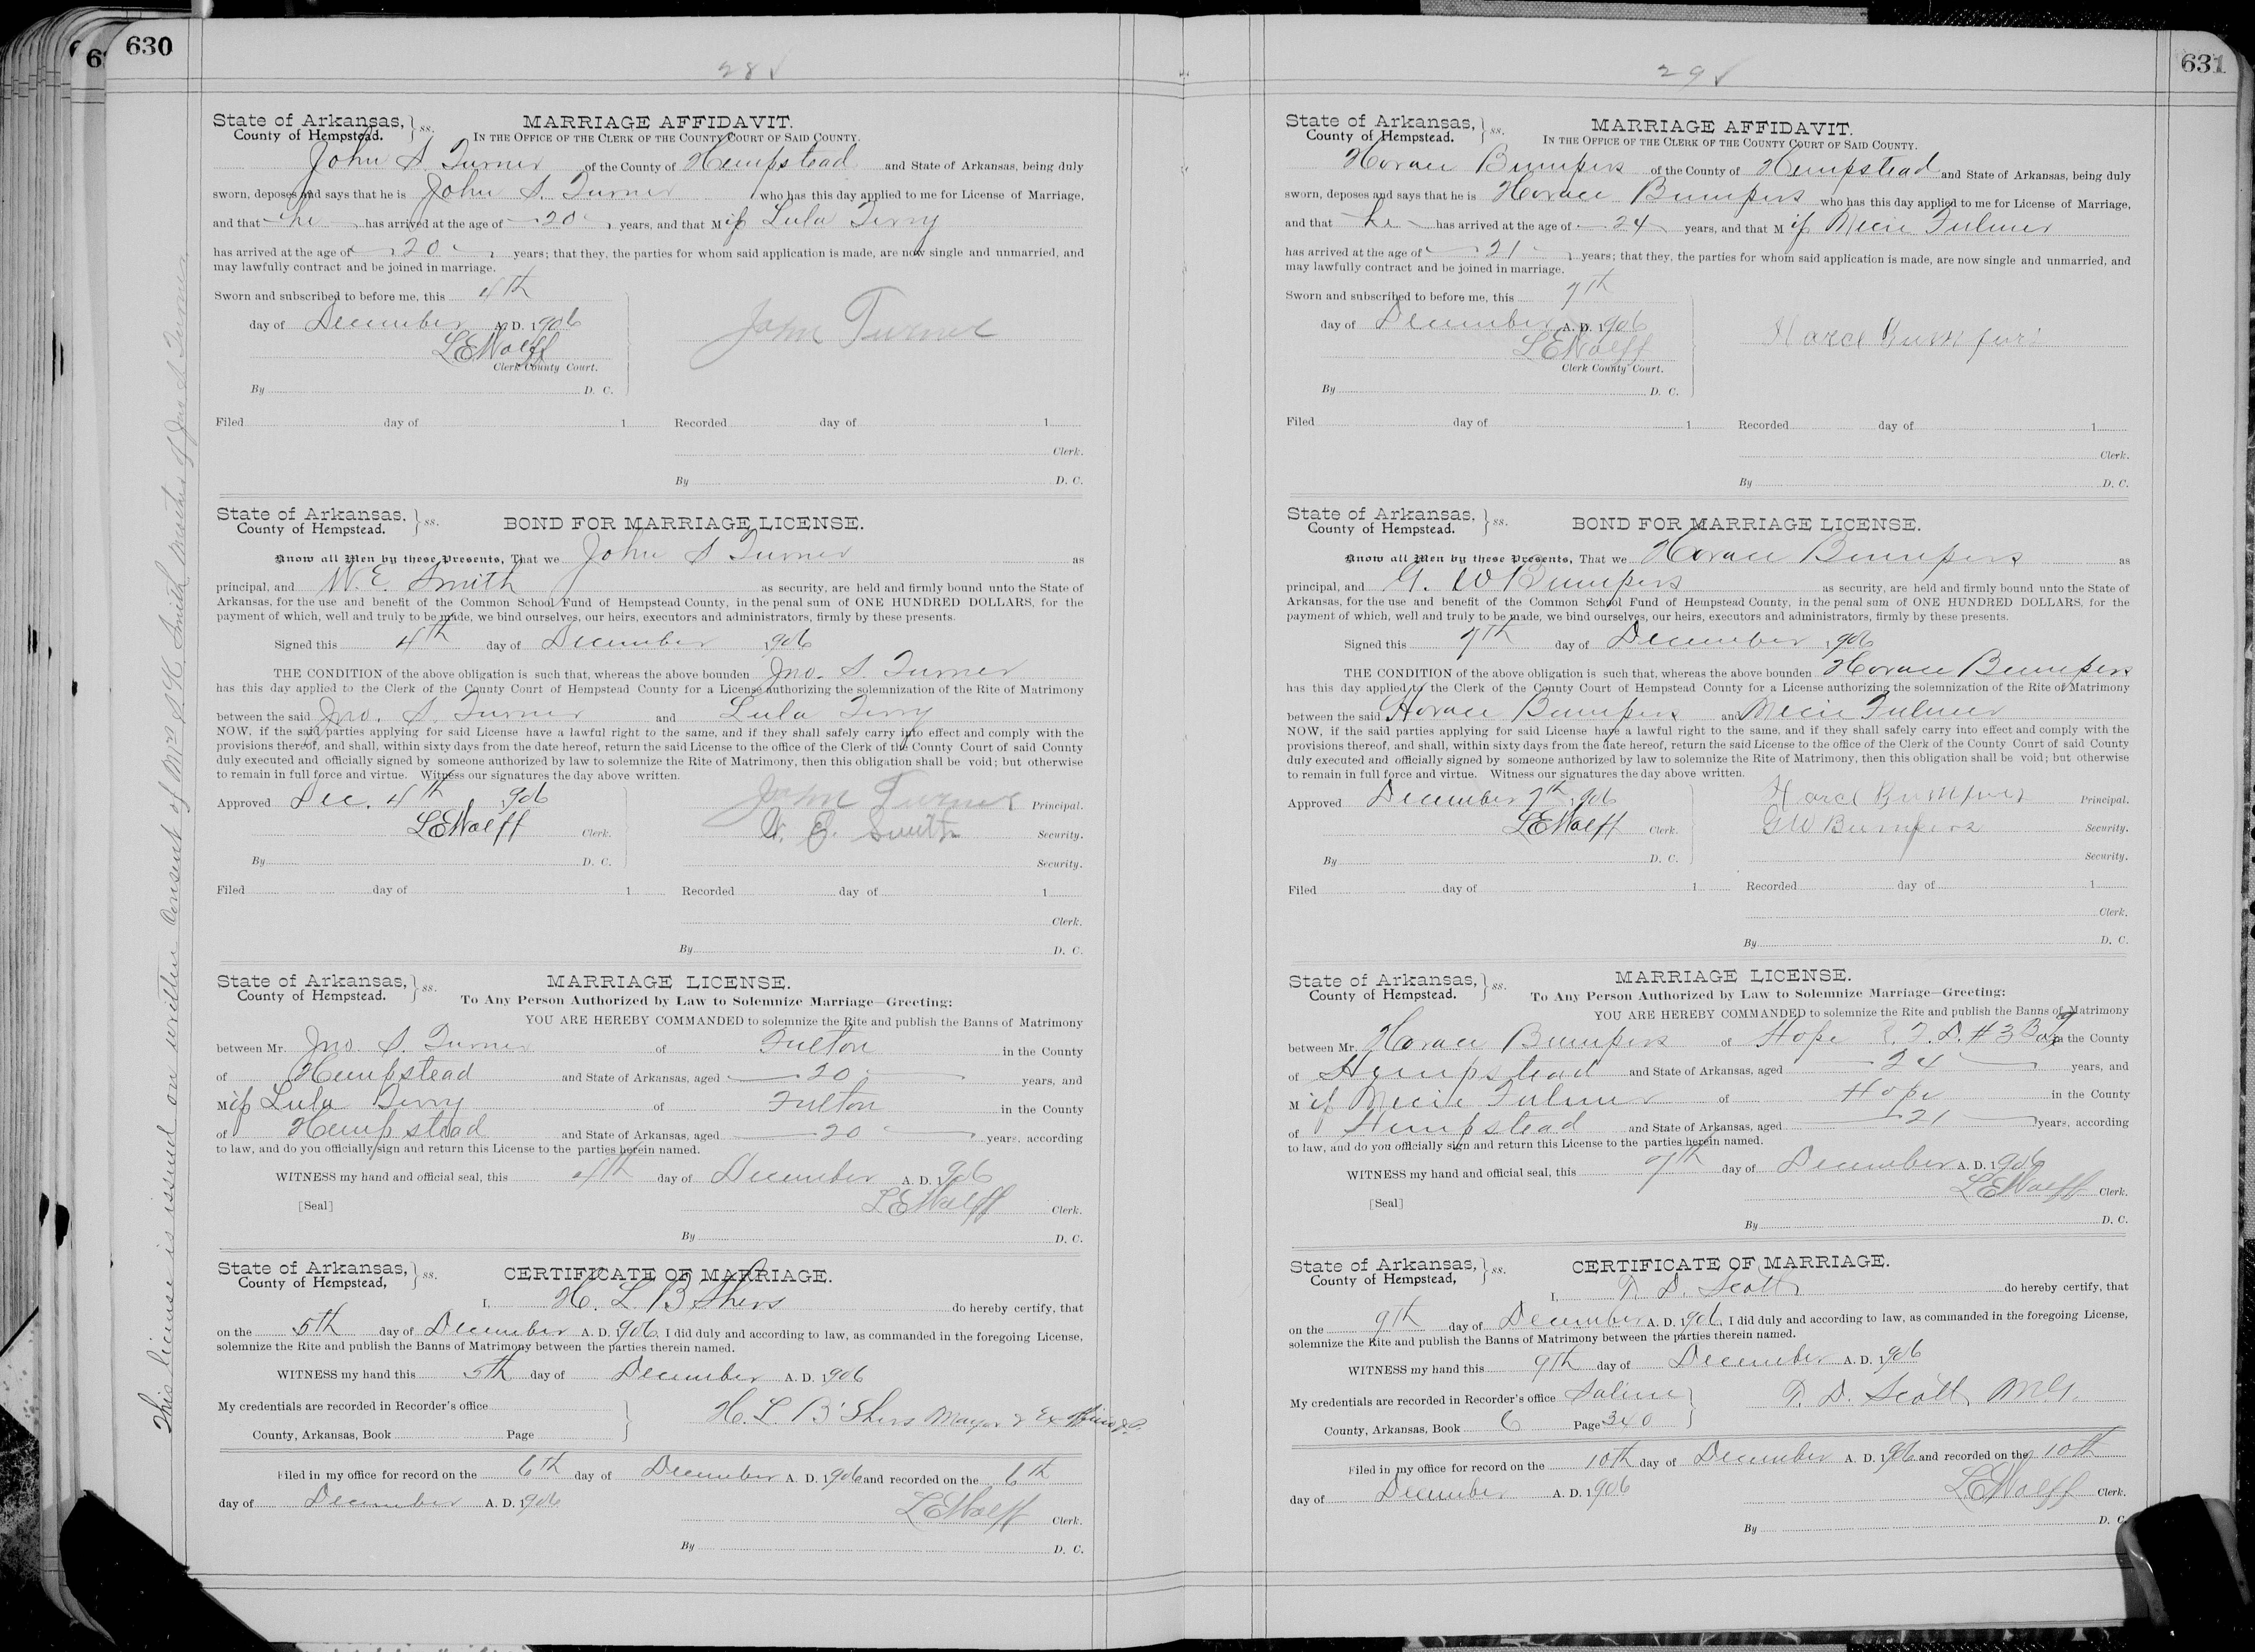 630
28
State of Arkansas,
County of Hempstead. } ss.
MARRIAGE AFFIDAVIT.
IN THE OFFICE OF THE CLERK OF THE COUNTY COURT OF SAID COUNTY.
John S. Turner of the County of Hempstead and State of Arkansas, being duly
sworn, deposes and says that he is John S. Turner who has this day applied to me for License of Marriage,
and that he has arrived at the age of 20 years, and that Miss Lula Terry
has arrived at the age of 20 years; that they, the parties for whom said application is made, are now single and unmarried, and
may lawfully contract and be joined in marriage.
Sworn and subscribed to before me, this 4th
day of December A. D. 1906
John Turner
LEWolff
Clerk County Court.
By D. C.
Filed day of 1 Recorded day of 1
Clerk.
By D. C.
State of Arkansas,
County of Hempstead. } ss.
BOND FOR MARRIAGE LICENSE.
Know all Men by these Presents, That we John S Turner as
principal, and W. E. Smith as security, are held and firmly bound unto the State of
Arkansas, for the use and benefit of the Common School Fund of Hempstead County, in the penal sum of ONE HUNDRED DOLLARS, for the
payment of which, well and truly to be made, we bind ourselves, our heirs, executors and administrators, firmly by these presents.
Signed this 4th day of December 1906
THE CONDITION of the above obligation is such that, whereas the above bounden Jno. S. Turner
has this day applied to the Clerk of the County Court of Hempstead County for a License authorizing the solemnization of the Rite of Matrimony
between the said Jno. S. Turner and Lula Terry
NOW, if the said parties applying for said License have a lawful right to the same, and if they shall safely carry into effect and comply with the
provisions thereof, and shall, within sixty days from the date hereof, return the said License to the office of the Clerk of the County Court of said County
duly executed and officially signed by someone authorized by law to solemnize the Rite of Matrimony, then this obligation shall be void; but otherwise
to remain in full force and virtue. Witness our signatures the day above written.
Approved Dec. 4th 1906 John Turner Principal.
LEWolff Clerk. W. E. Smith Security.
By D. C. Security.
Filed day of 1 Recorded day of 1
Clerk.
By D. C.
State of Arkansas,
County of Hempstead. } ss.
MARRIAGE LICENSE.
To Any Person Authorized by Law to Solemnize Marriage—Greeting:
YOU ARE HEREBY COMMANDED to solemnize the Rite and publish the Banns of Matrimony
between Mr. Jno. S. Turner of Fulton in the County
of Hempstead and State of Arkansas, aged 20 years, and
Miss Lula Terry of Fulton in the County
of Hempstead and State of Arkansas, aged 20 years, according
to law, and do you officially sign and return this License to the parties herein named.
WITNESS my hand and official seal, this 4th day of December A. D. 1906
[Seal] LEWolff Clerk.
By D. C.
State of Arkansas,
County of Hempstead, } ss.
CERTIFICATE OF MARRIAGE.
I, H. L. B'Shers do hereby certify, that
on the 5th day of December A. D. 1906, I did duly and according to law, as commanded in the foregoing License,
solemnize the Rite and publish the Banns of Matrimony between the parties therein named.
WITNESS my hand this 5th day of December A. D. 1906
My credentials are recorded in Recorder's office
H. L. B'Shers Mayor & Ex-officio J.P.
County, Arkansas, Book Page
Filed in my office for record on the 6th day of December A. D. 1906 and recorded on the 6th
day of December A. D. 1906
LEWolff Clerk.
By D. C.
This license is issued on written Consent of Mrs S. K. Smith Mother of Jno S. Turner
631
29
State of Arkansas,
County of Hempstead. } ss.
MARRIAGE AFFIDAVIT.
IN THE OFFICE OF THE CLERK OF THE COUNTY COURT OF SAID COUNTY.
Horace Bumpers of the County of Hempstead and State of Arkansas, being duly
sworn, deposes and says that he is Horace Bumpers who has this day applied to me for License of Marriage,
and that he has arrived at the age of 24 years, and that Miss Mecie Fulmer
has arrived at the age of 21 years; that they, the parties for whom said application is made, are now single and unmarried, and
may lawfully contract and be joined in marriage.
Sworn and subscribed to before me, this 7th
day of December A. D. 1906
Harce Bumpurs
LEWolff
Clerk County Court.
By D. C.
Filed day of 1 Recorded day of 1
Clerk.
By D. C.
State of Arkansas,
County of Hempstead. } ss.
BOND FOR MARRIAGE LICENSE.
Know all Men by these Presents, That we Horace Bumpers as
principal, and G. W Bumpers as security, are held and firmly bound unto the State of
Arkansas, for the use and benefit of the Common School Fund of Hempstead County, in the penal sum of ONE HUNDRED DOLLARS, for the
payment of which, well and truly to be made, we bind ourselves, our heirs, executors and administrators, firmly by these presents.
Signed this 7th day of December 1906
THE CONDITION of the above obligation is such that, whereas the above bounden Horace Bumpers
has this day applied to the Clerk of the County Court of Hempstead County for a License authorizing the solemnization of the Rite of Matrimony
between the said Horace Bumpers and Mecie Fulmer
NOW, if the said parties applying for said License have a lawful right to the same, and if they shall safely carry into effect and comply with the
provisions thereof, and shall, within sixty days from the date hereof, return the said License to the office of the Clerk of the County Court of said County
duly executed and officially signed by someone authorized by law to solemnize the Rite of Matrimony, then this obligation shall be void; but otherwise
to remain in full force and virtue. Witness our signatures the day above written.
Approved December 7th 1906 Harce Bumpurs Principal.
LEWolff Clerk. GW Bumpers Security.
By D. C. Security.
Filed day of 1 Recorded day of 1
Clerk.
By D. C.
State of Arkansas,
County of Hempstead. } ss.
MARRIAGE LICENSE.
To Any Person Authorized by Law to Solemnize Marriage—Greeting:
YOU ARE HEREBY COMMANDED to solemnize the Rite and publish the Banns of Matrimony
between Mr. Horace Bumpers of Hope R. F. D. #3 in the County
of Hempstead and State of Arkansas, aged 24 years, and
Miss Mecie Fulmer of Hope in the County
of Hempstead and State of Arkansas, aged 21 years, according
to law, and do you officially sign and return this License to the parties herein named.
WITNESS my hand and official seal, this 7th day of December A. D. 1906
[Seal] LEWolff Clerk.
By D. C.
State of Arkansas,
County of Hempstead, } ss.
CERTIFICATE OF MARRIAGE.
I, T. D. Scott do hereby certify, that
on the 9th day of December A. D. 1906, I did duly and according to law, as commanded in the foregoing License,
solemnize the Rite and publish the Banns of Matrimony between the parties therein named.
WITNESS my hand this 9th day of December A. D. 1906
My credentials are recorded in Recorder's office Saline
T. D. Scott M.G.
County, Arkansas, Book C Page 340
Filed in my office for record on the 10th day of December A. D. 1906 and recorded on the 10th
day of December A. D. 1906
LEWolff Clerk.
By D. C.